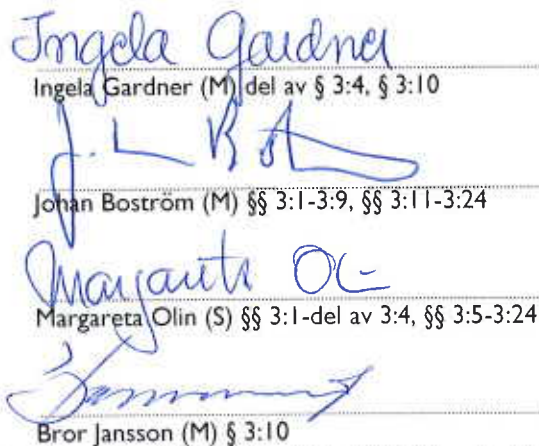 Ingela Gardner
Ingela Gardner (M) del av § 3:4, § 3:10
Johan Boström (M) §§ 3:1-3:9, §§ 3:11-3:24
Margareta Ol
Margareta Olin (S) §§ 3:1-del av 3:4, §§ 3:5-3:24
Bror Jansson (M) § 3:10